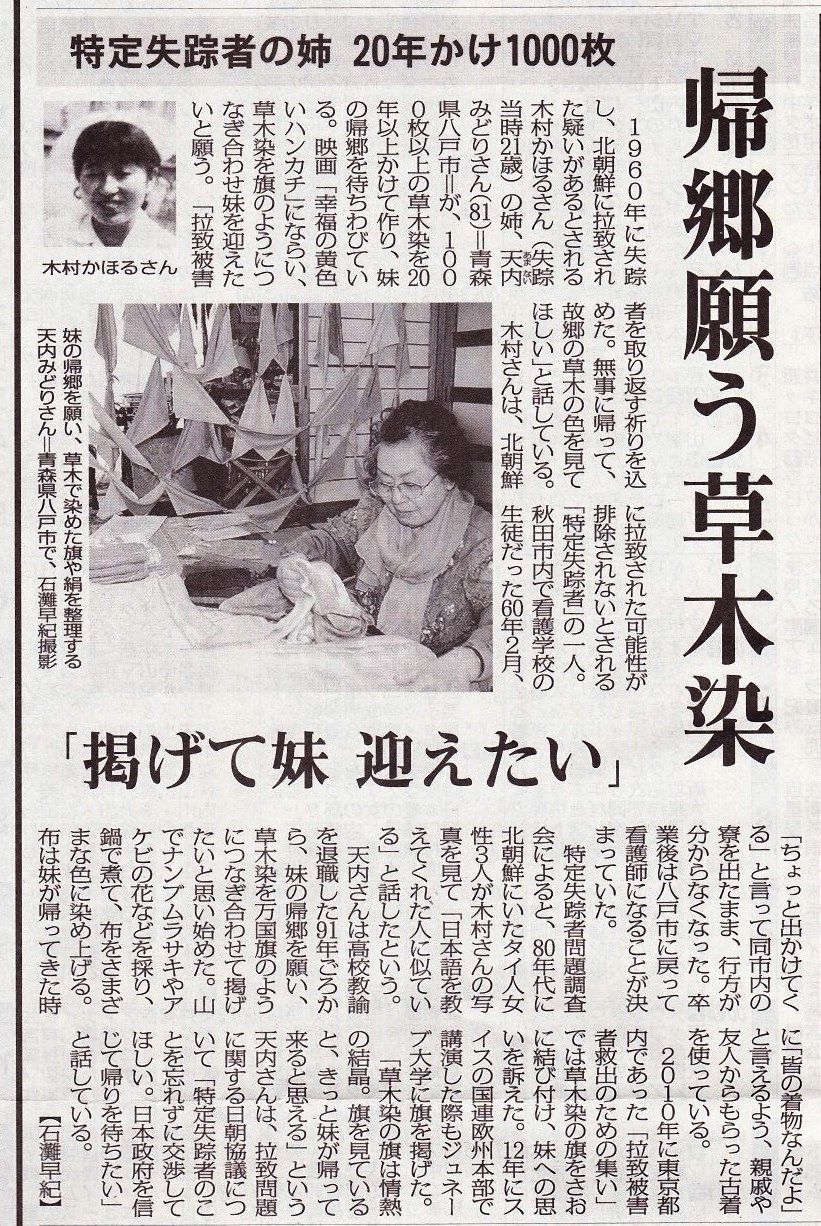 特定失踪者の姉 20年かけ1000枚
帰郷願う草木染
１９６０年に失踪
し、北朝鮮に拉致され
た疑いがあるとされる
木村かほるさん（失踪
当時21歳）の姉、天内
あまない
みどりさん(81)＝青森
県八戸市＝が、１００
０枚以上の草木染を20
年以上かけて作り、妹
の帰郷を待ちわびてい
る。映画「幸福の黄色
いハンカチ」にならい、
草木染を旗のようにつ
なぎ合わせ妹を迎えた
いと願う。「拉致被害
木村かほるさん
者を取り返す祈りを込
めた。無事に帰って、
故郷の草木の色を見て
ほしい」と話している。
木村さんは、北朝鮮
に拉致された可能性が
排除されないとされる
「特定失踪者」の一人。
秋田市内で看護学校の
生徒だった60年２月、
妹の帰郷を願い、草木で染めた旗や絹を整理する
天内みどりさん＝青森県八戸市で、石灘早紀撮影
「掲げて妹 迎えたい」
「ちょっと出かけてく
る」と言って同市内の
寮を出たまま、行方が
分からなくなった。卒
業後は八戸市に戻って
看護師になることが決
まっていた。
特定失踪者問題調査
会によると、80年代に
北朝鮮にいたタイ人女
性３人が木村さんの写
真を見て「日本語を教
えてくれた人に似てい
る」と話したという。
天内さんは高校教諭
を退職した91年ごろか
ら、妹の帰郷を願い、
草木染を万国旗のよう
につなぎ合わせて掲げ
たいと思い始めた。山
でナンブムラサキやア
ケビの花などを採り、
鍋で煮て、布をさまざ
まな色に染め上げる。
布は妹が帰ってきた時
に「皆の着物なんだよ」
と言えるよう、親戚や
友人からもらった古着
を使っている。
２０１０年に東京都
内であった「拉致被害
者救出のための集い」
では草木染の旗をさお
に結び付け、妹への思
いを訴えた。12年にス
イスの国連欧州本部で
講演した際もジュネー
ブ大学に旗を掲げた。
「草木染の旗は情熱
の結晶。旗を見ている
と、きっと妹が帰って
来ると思える」という
天内さんは、拉致問題
に関する日朝協議につ
いて「特定失踪者のこ
とを忘れずに交渉して
ほしい。日本政府を信
じて帰りを待ちたい」
と話している。
【石灘早紀】